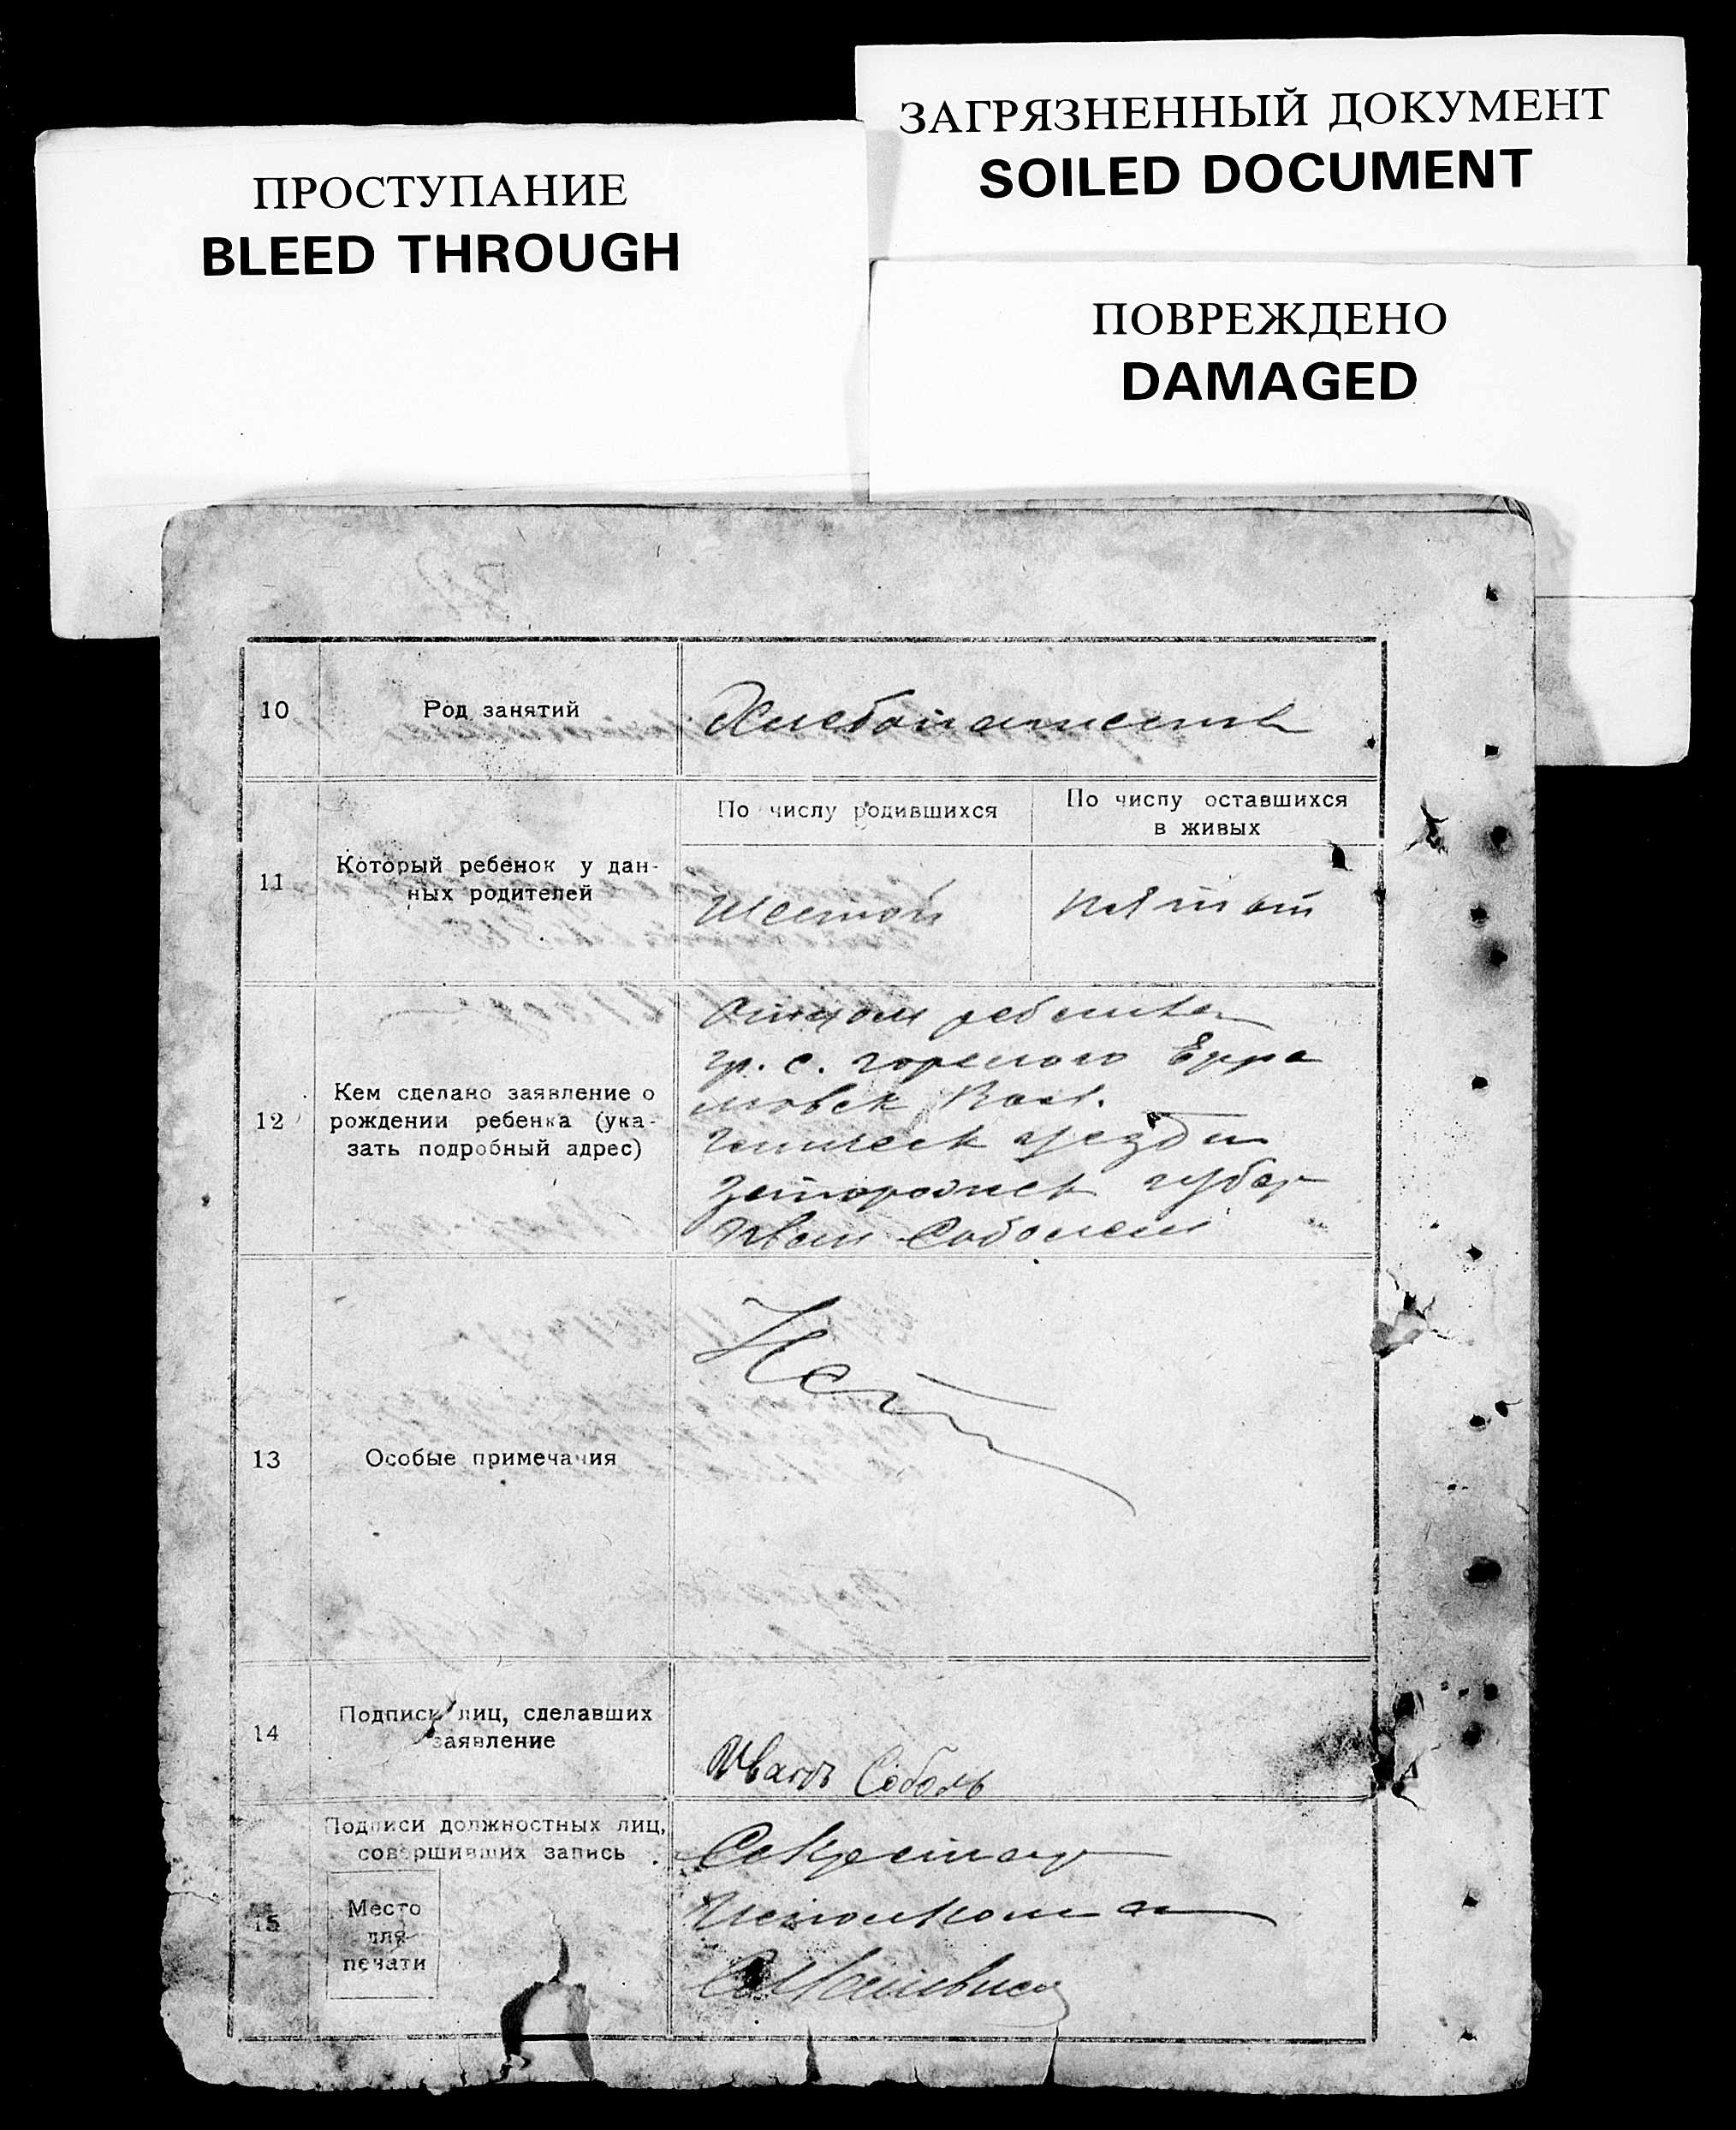 ЗАГРЯЗНЕННЫЙ ДОКУМЕНТ
SOILED DOCUMENT
ПРОСТУПАНИЕ
BLEED THROUGH
ПОВРЕЖДЕНО
DAMAGED
10
Род занятий
11
Который ребенок у дан-
ных родителей
По числу родившихся
По числу оставшихся
в живых
Шестой
пятый
12
Кем сделано заявление о
рождении ребенка (ука-
зать подробный адрес)
Отцом ребенка
гр. с.
уезда
губер
Иван
13
Особые примечания
Нет
14
Подписи лиц, сделавших
заявление
Иванъ Соболь
15
Подписи должностных лиц,
совершивших запись
Место
для
печати
Секретарь
Исполкома